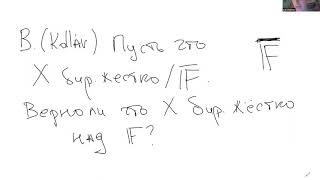 В. (Kollár) Пусть это
X бир. жестко / F̅.
F̅
Верно ли это X бир. жёстко
над F?